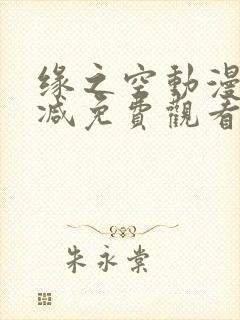 缘之空動漫
减免費觀看
朱永棠